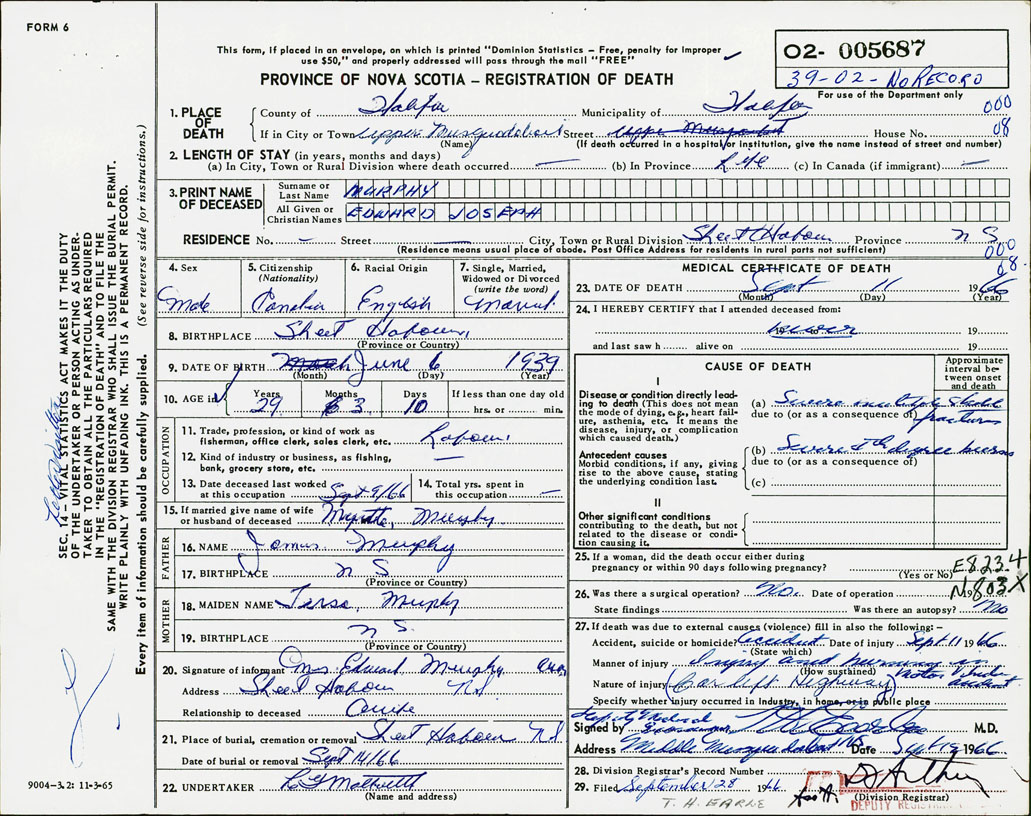 FORM 6
This form, if placed in an envelope, on which is printed "Dominion Statistics – Free, penalty for improper
use $50," and properly addressed will pass through the mail "FREE"
O2- 005687
39-02-NO RECORD
For use of the Department only
PROVINCE OF NOVA SCOTIA – REGISTRATION OF DEATH
000
08
1. PLACE OF DEATH
County of Halifax Municipality of Halifax
If in City or Town Upper Musquodoboit Street House No.
(Name) (If death occurred in a hospital or institution, give the name instead of street and number)
2. LENGTH OF STAY (in years, months and days)
(a) In City, Town or Rural Division where death occurred — (b) In Province Life (c) In Canada (if immigrant) —
3. PRINT NAME OF DECEASED
Surname or Last Name MURPHY
All Given or Christian Names EDWARD JOSEPH
RESIDENCE No. – Street — City, Town or Rural Division Sheet Harbour Province N S
(Residence means usual place of abode. Post Office Address for residents in rural parts not sufficient)
000
08.
4. Sex
Male
5. Citizenship
(Nationality)
Canadian
6. Racial Origin
English
7. Single, Married,
Widowed or Divorced
(write the word)
Married
8. BIRTHPLACE Sheet Harbour,
(Province or Country)
9. DATE OF BIRTH March June 6 1939
(Month) (Day) (Year)
10. AGE in Years Months Days If less than one day old
3 10 hrs. or min.
OCCUPATION
11. Trade, profession, or kind of work as
fisherman, office clerk, sales clerk, etc. Labourer
12. Kind of industry or business, as fishing,
bank, grocery store, etc. —
13. Date deceased last worked
at this occupation Sept 9/66
14. Total yrs. spent in
this occupation —
15. If married give name of wife
or husband of deceased Myrtle, Murphy
FATHER
16. NAME James Murphy
17. BIRTHPLACE N S
(Province or Country)
MOTHER
18. MAIDEN NAME Tersa, Murphy
19. BIRTHPLACE N S.
(Province or Country)
20. Signature of informant Mrs. Edward Murphy
Address Sheet Harbour NS
Relationship to deceased Wife
21. Place of burial, cremation or removal Sheet Harbour NS
Date of burial or removal Sept 14/66
22. UNDERTAKER
(Name and address)
MEDICAL CERTIFICATE OF DEATH
23. DATE OF DEATH Sept 11 1966
(Month) (Day) (Year)
24. I HEREBY CERTIFY that I attended deceased from:
never 19
and last saw h alive on 19
CAUSE OF DEATH
Approximate
interval be-
tween onset
and death
I
Disease or condition directly lead-
ing to death (This does not mean
the mode of dying, e.g., heart fail-
ure, asthenia, etc. It means the
disease, injury, or complication
which caused death.)
(a) Severe multiple skull
due to (or as a consequence of) fractures
Antecedent causes
Morbid conditions, if any, giving
rise to the above cause, stating
the underlying condition last.
(b) Severe degree burns
due to (or as a consequence of)
(c)
II
Other significant conditions
contributing to the death, but not
related to the disease or condi-
tion causing it.
25. If a woman, did the death occur either during
pregnancy or within 90 days following pregnancy?
(Yes or No)
E823.4
N803X
26. Was there a surgical operation? No. Date of operation 19
State findings Was there an autopsy? No
27. If death was due to external causes (violence) fill in also the following:–
Accident, suicide or homicide? Accident Date of injury Sept 11 1966
(State which)
Manner of injury Injury and burning in
(How sustained) motor vehicle
accident
Nature of injury (Car left Highway)
Specify whether injury occurred in Industry, in home, or in public place
Deputy Medical
Examiner
Signed by M.D.
Address Middle Musquodoboit NS Date Sept 1966
28. Division Registrar's Record Number
29. Filed September 28 1966
(Division Registrar)
DEPUTY REGISTRAR
T. H. EARLE
SEC. 14 – VITAL STATISTICS ACT MAKES IT THE DUTY
OF THE UNDERTAKER OR PERSON ACTING AS UNDER-
TAKER TO OBTAIN ALL THE PARTICULARS REQUIRED
IN THE "REGISTRATION OF DEATH" AND TO FILE THE
SAME WITH THE DIVISION REGISTRAR WHO SHALL ISSUE THE BURIAL PERMIT.
WRITE PLAINLY WITH UNFADING INK. THIS IS A PERMANENT RECORD.
Every item of information should be carefully supplied. (See reverse side for instructions.)
9004–3.2: 11-3-65